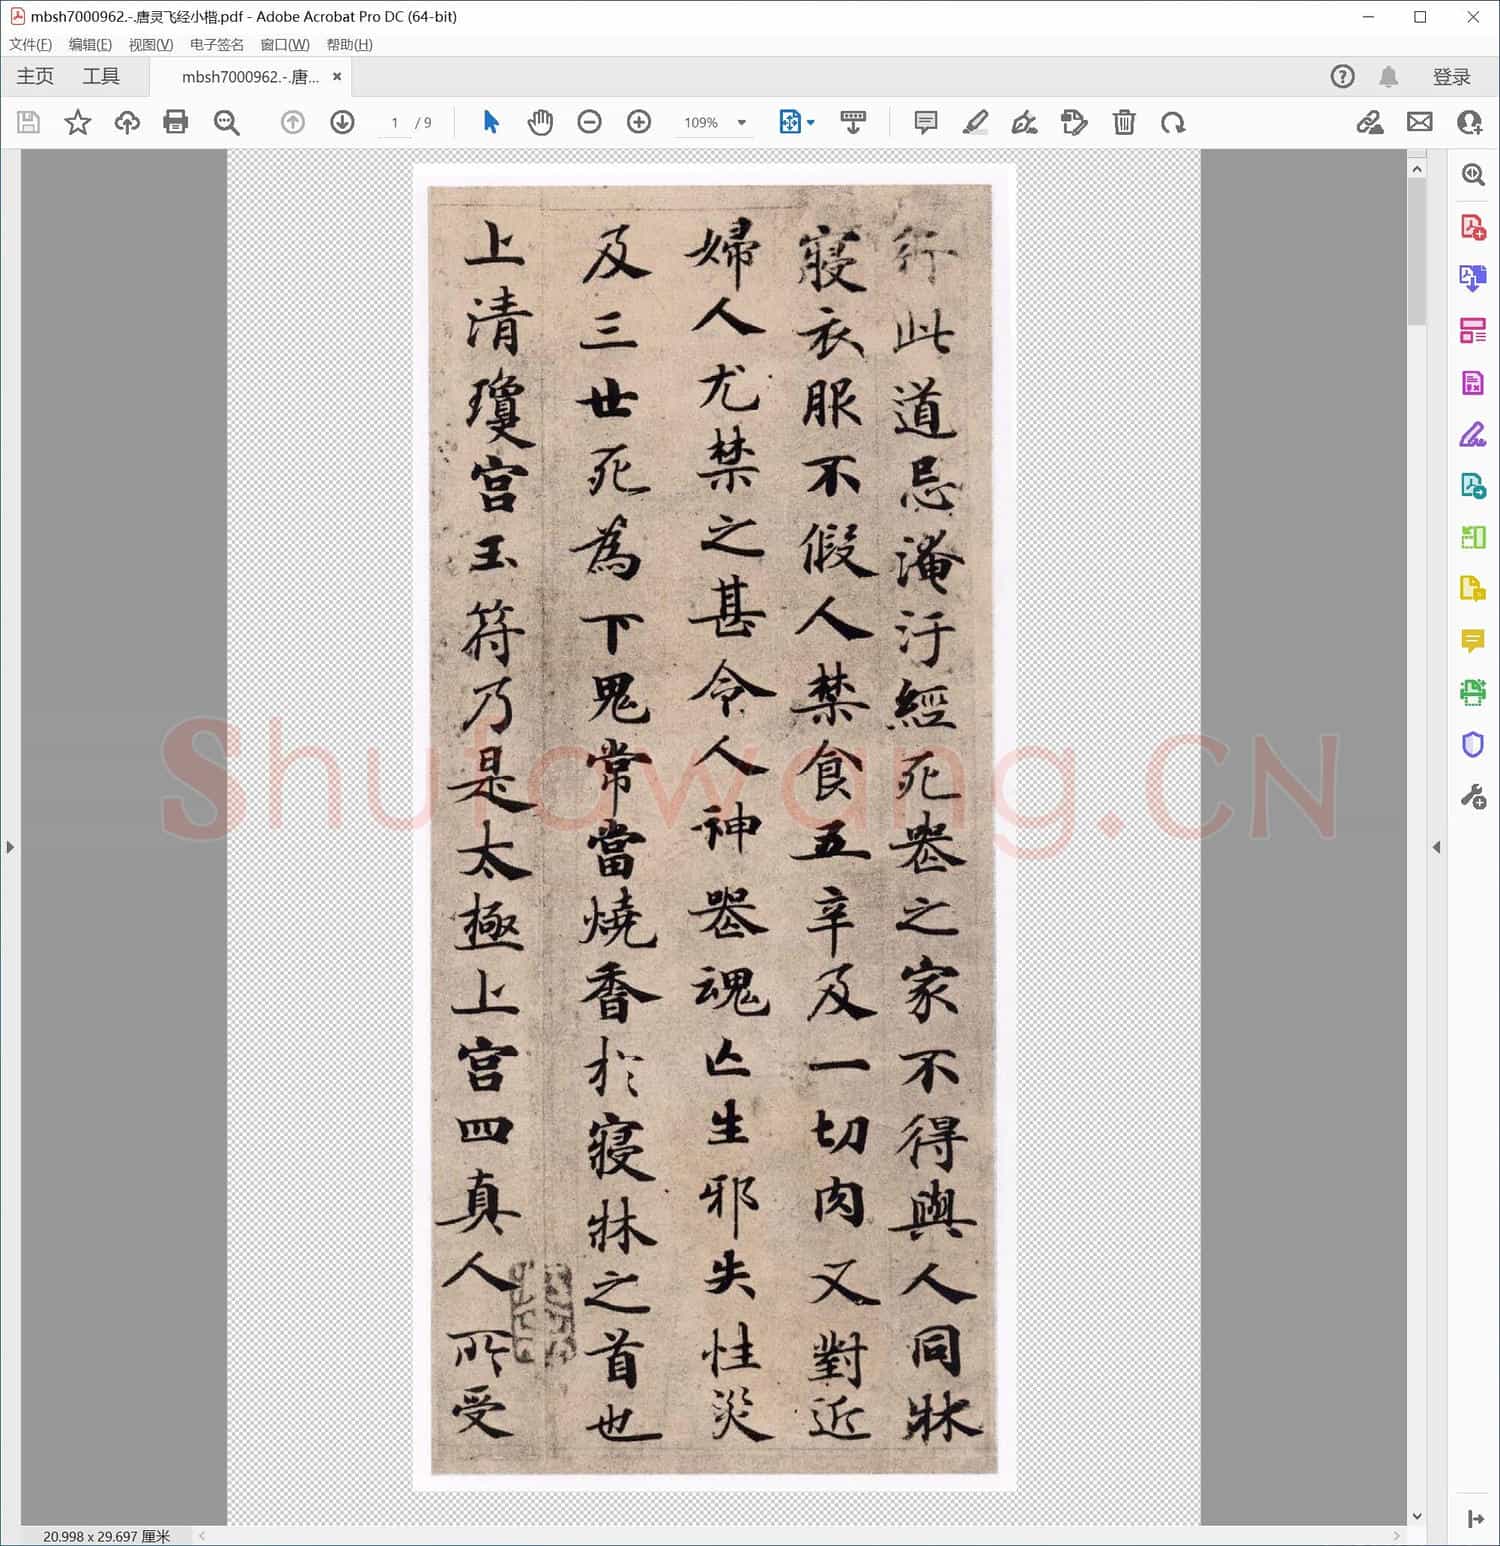 mbsh7000962.-.唐灵飞经小楷.pdf - Adobe Acrobat Pro DC (64-bit)
文件(F) 编辑(E) 视图(V) 电子签名 窗口(W) 帮助(H)
主页 工具 mbsh7000962.-.唐... × 登录
1 / 9 109%
行此道忌淹汙經死喪之家不得與人同牀
寢衣服不假人禁食五辛及一切肉又對近
婦人尤禁之甚令人神喪魂亡生邪失性災
及三世死為下鬼常當燒香於寢牀之首也
上清瓊宮玉符乃是太極上宮四真人所受
Shufawang.CN
20.998 x 29.697 厘米